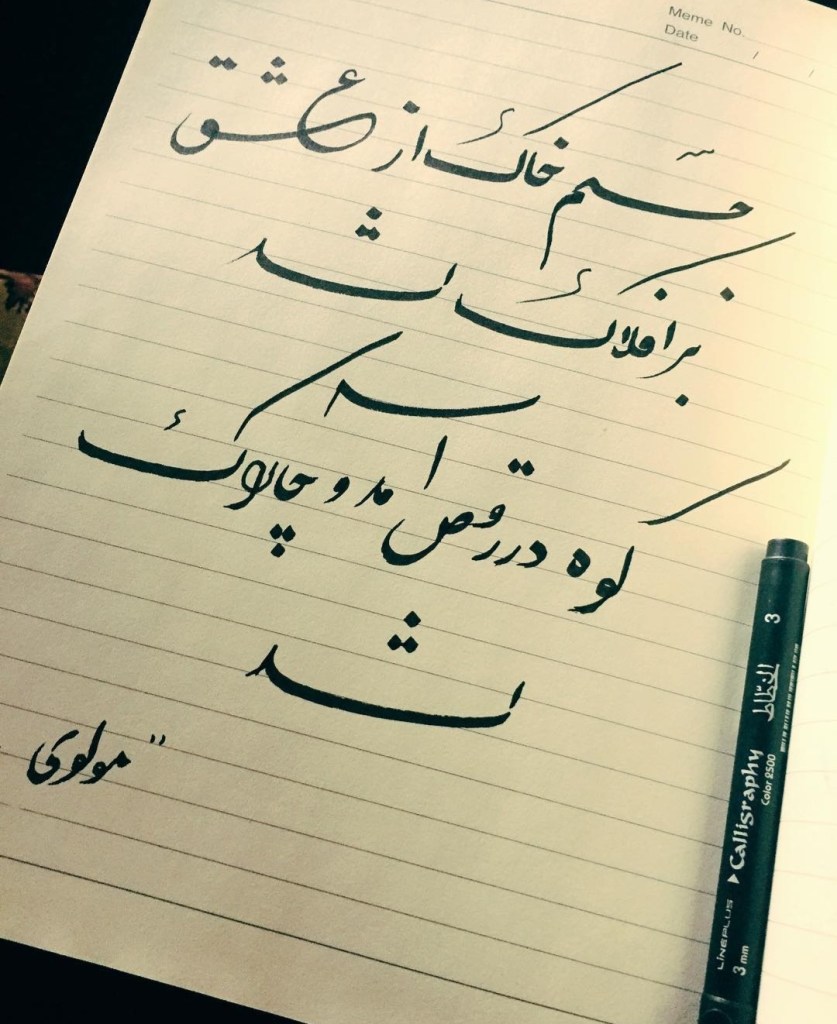 Meme No.
Date / /
جسم خاک از عشق
بر افلاک شد
کوه در رقص امد و چالاک
شد
"مولوی
3
الخطاط
Calligraphy
Color 2500
LINEPLUS
3 mm